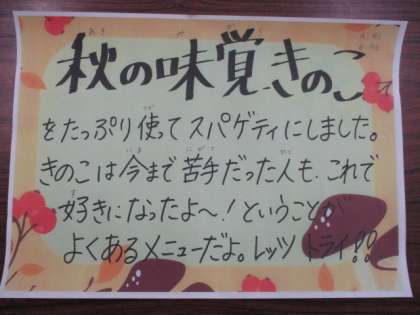 秋の味覚きのこ
をたっぷり使ってスパゲティにしました。
きのこは今まで苦手だった人も、これで
好きになったよ〜!ということが
よくあるメニューだよ。レッツ トライ!!